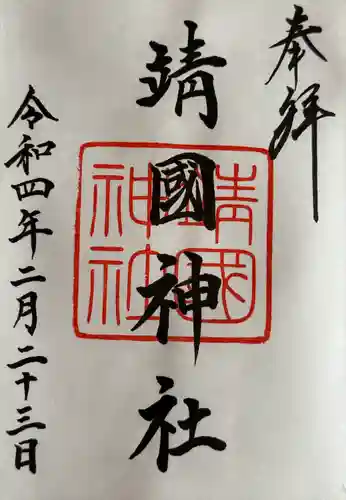 奉拝
靖國神社
靖国神社
令和四年二月二十三日